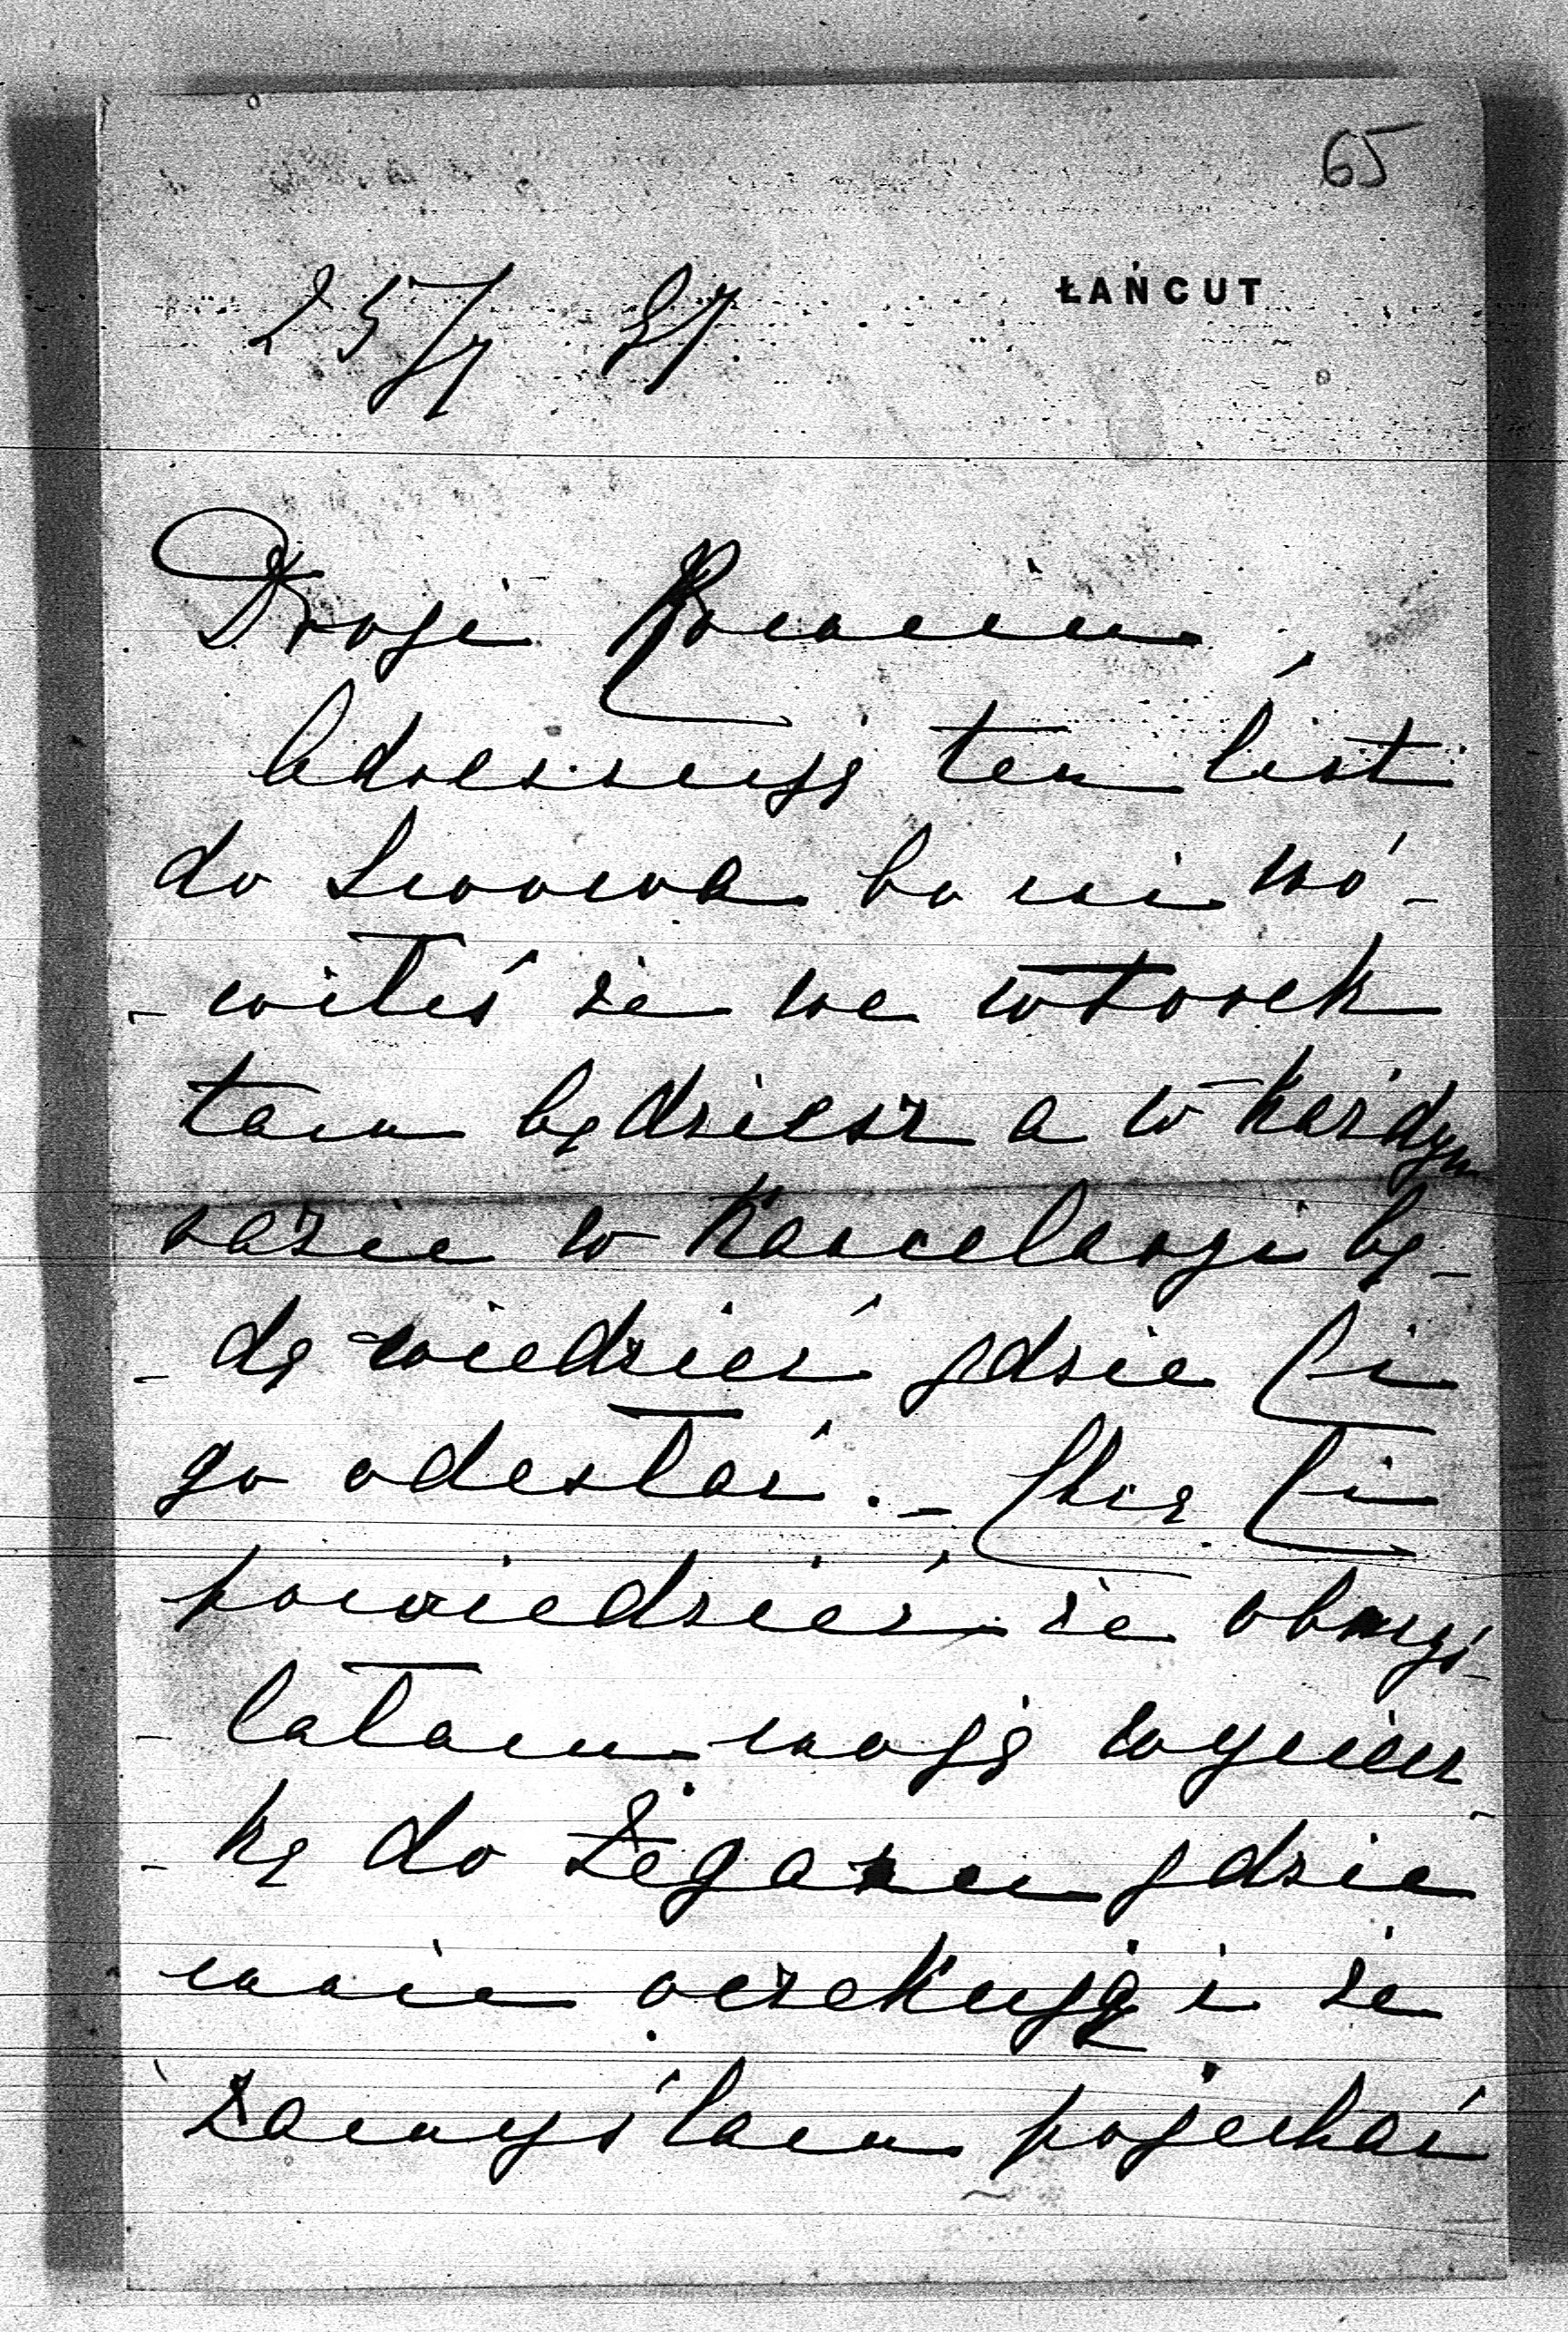 65
ŁAŃCUT
25/
Drogi Romciu,
Adresuję ten list
do Lwowa bo mi mó-
-wiłeś że we wtorek
tam będziesz a w każdym
razie w Kancelarji bę-
-dę wiedzieć gdzie Ci
go odesłać. – Chcę Ci
powiedzieć że obmyś-
-lałam moją wyciecz-
-kę do Żegania gdzie
mnie oczekują i że
zamyślam pojechać